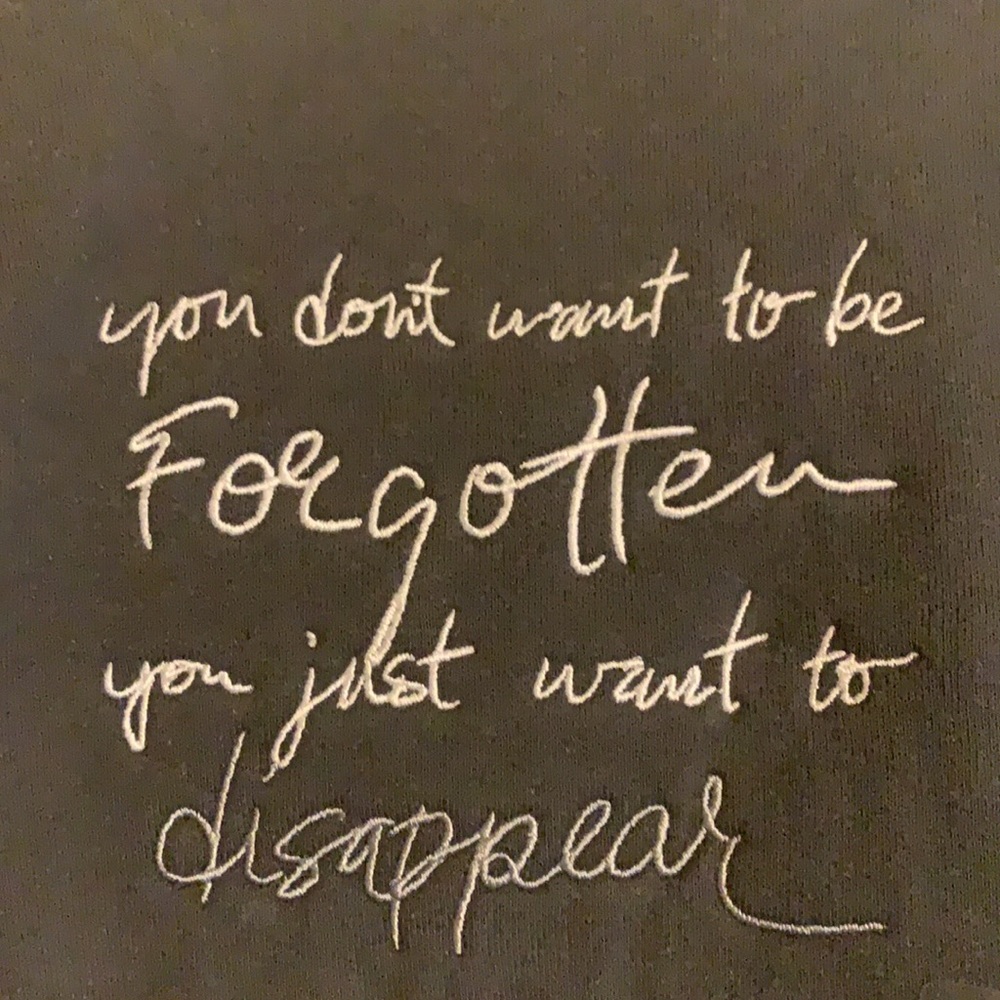 you don't want to be
Forgotten
you just want to
disappear